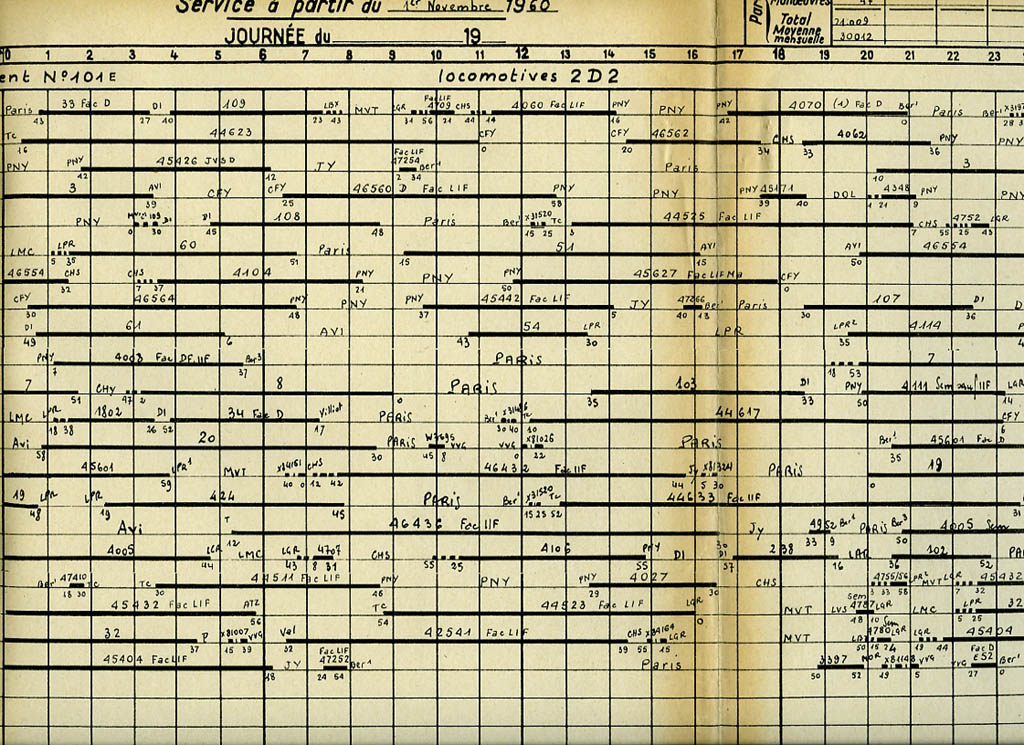 Service à partir du 1er Novembre 1960
Manœuvres
Total 21.009
Moyenne mensuelle 30012
JOURNÉE du 19
0 1 2 3 4 5 6 7 8 9 10 11 12 13 14 15 16 17 18 19 20 21 22 23
ent N°101E locomotives 2D2
Paris 33 Fac D DI 109 LBX MVT LGR Fac LIF 4709 CHS 4060 Fac LIF PNY PNY PNY 4070 (1) Fac D Ber1 Paris Ber1
43 27 40 23 43 31 56 21 44 14 16 42 0 28
Tc 44623 CFY CFY 46562 CHS 4062 PNY PNY
16 0 20 34 33 36
PNY PNY 45426 JVSD JY Fac LIF 47254 Ber1 Paris 3
42 12 2 34 10
3 AVI CFY CFY 46560 D Fac LIF PNY PNY PNY 45171 DOL 4348 PNY
39 25 58 39 40 1 21 9
PNY DI 108 Paris Ber1 X31520 TC 44525 Fac LIF CHS 4752 LGR
0 30 45 48 15 25 3 7 55 25 43
LMC LPR 60 Paris 51 AVI AVI 46554
5 35 51 15 15 50
46554 CHS CHS 4104 PNY PNY PNY 45627 Fac LIF Ma CFY
32 7 37 21 50 0
CFY 46564 PNY PNY PNY 45442 Fac LIF JY 47266 Ber1 Paris 107 DI D
30 48 37 5 40 13 30 36
DI 61 AVI 54 LPR LPR LPR2 4114
49 6 43 30 35
PNY 4003 Fac DF.IIF Ber3 PARIS 7
7 37 18 53
7 CHY 8 PARIS 103 DI PNY 4111 LGR
51 47 2 0 35 33 50 14
LMC LPR 1802 DI 34 Fac D Villiot PARIS Ber1 Tc 44617 CFY
18 38 26 52 17 30 40 10 6
Avi 20 PARIS W7695 VVG VVG X81026 PARIS Ber1 45601 Fac D
58 30 45 8 0 22 35
45601 LPR1 MVT X84161 CHS 46432 Fac IIF Jy X81324 PARIS 19
59 40 0 12 42 44 5 30 0
19 LPR LPR 424 PARIS Ber1 X31520 Tc 44633 Fac IIF
48 19 45 15 25 52 31
Avi T 46436 Fac IIF Jy 4952 Ber1 PARIS Ber3 4005 Sem
12 30 33 9 50
4005 LGR LMC LGR 4707 CHS 4106 PNY DI DI 238 LAR 102 PA
44 43 8 31 55 25 55 37 16 36 52
Ber1 47410 TC TC 44511 Fac LIF PNY PNY PNY 4027 CHS 4755/56 LPR2 MVT LGR 45432
18 30 30 46 29 30 3 33 58 7 32
45432 Fac LIF ATZ TC 44523 Fac LIF LGR MVT LVS Sem 4787 LGR LMC LPR 32
56 54 0 48 10 5 25
32 P X81007 VVG Val 42541 Fac LIF CHS X84164 LGR MVT Sem 4780 LGR LGR 45404
37 15 39 32 39 55 15 50 15 24 19 44
45404 Fac LIF JY Fac LIF 47252 Ber1 Paris 3397 MOR X81148 VVG VVG Fac D E52 Ber1
18 24 54 50 52 19 5 27 0